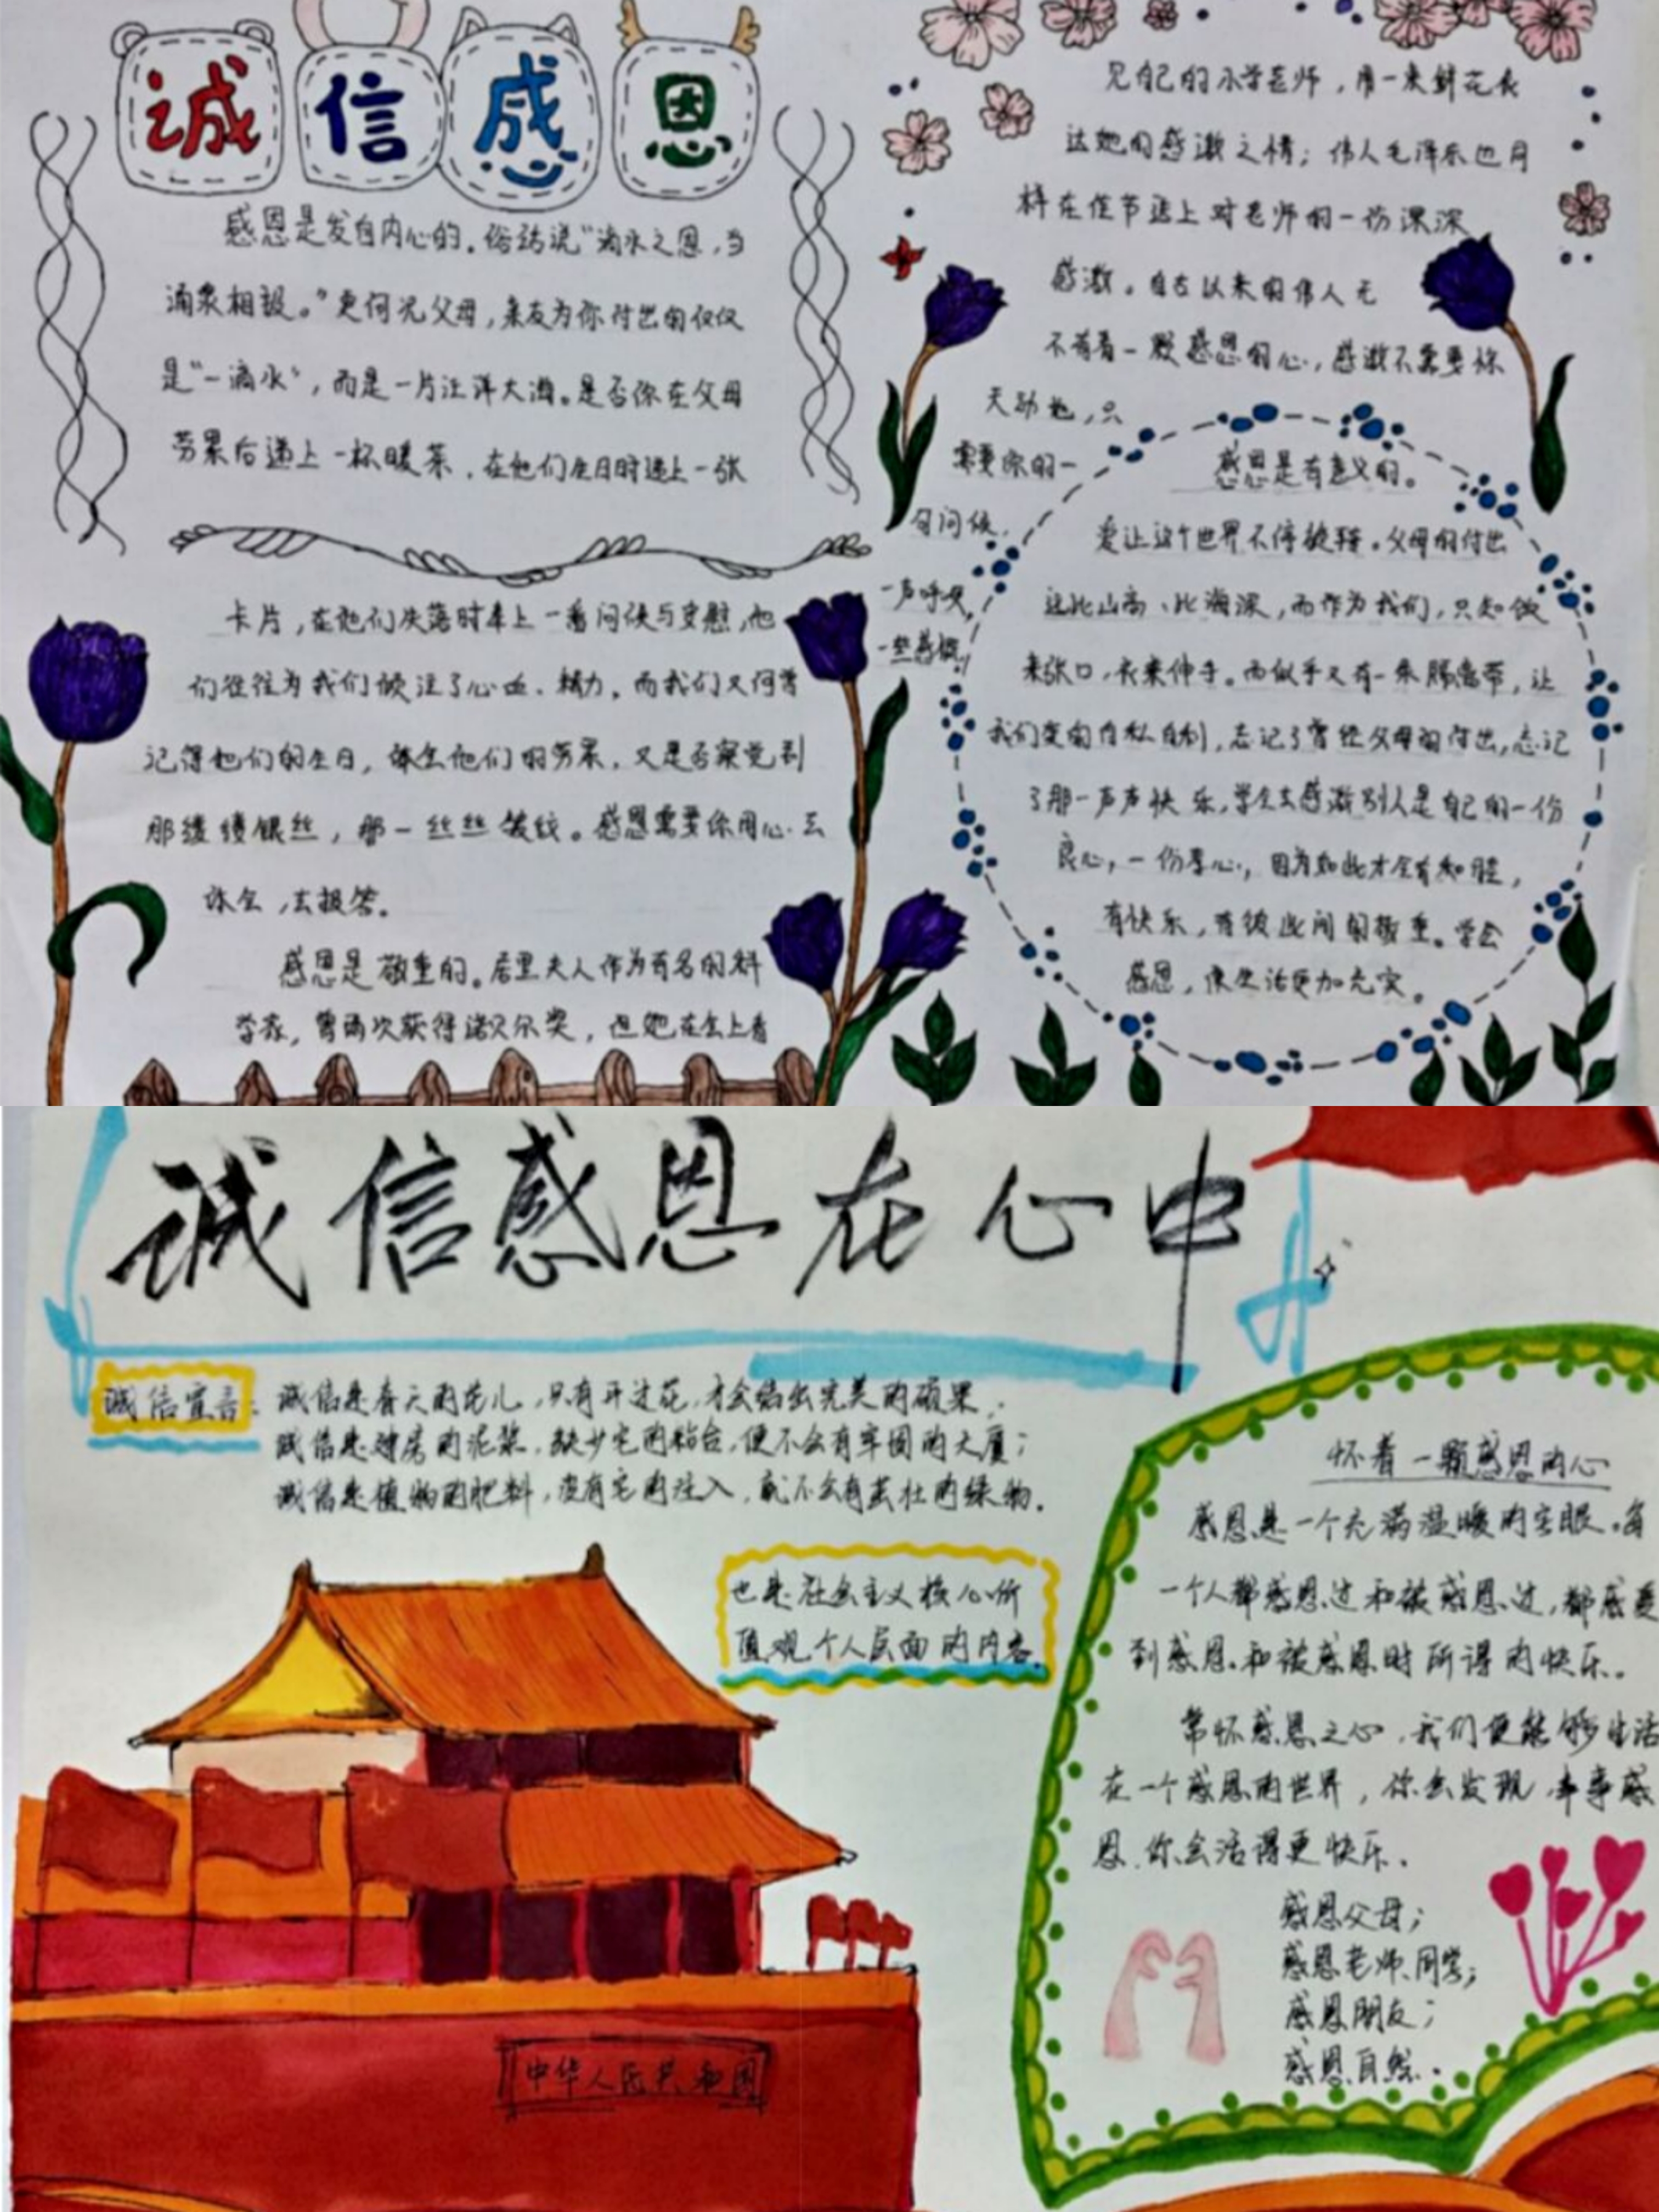 誠信感恩
感恩是发自内心的。俗话说“滴水之恩,当
涌泉相报。”更何况父母,亲友为你付出的仅仅
是“一滴水”,而是一片汪洋大海。是否你在父母
劳累后递上一杯暖茶,在他们生日时递上一张
卡片,在他们失落时奉上一番问候与安慰,他
们往往为我们倾注了心血、精力,而我们又何曾
记得他们的生日,体会他们的劳累,又是否察觉到
那缕缕银丝,那一丝丝皱纹。感恩需要你用心去
体会,去报答。
感恩是敬重的。居里夫人作为有名的科
学家,曾两次获得诺贝尔奖,但她在会上看
见自己的小学老师,用一束鲜花表
达她的感激之情;伟人毛泽东也同
样在佳节送上对老师的一份深深
感激。自古以来的伟人无
不有着一颗感恩的心,感激不需要惊
天动地,只
需要你的一
句问候,
一声呼唤,
一丝感慨
感恩是有意义的。
爱让这个世界不停旋转。父母的付出
远比山高、比海深,而作为我们,只知饭
来张口,衣来伸手。而似乎又有一条隔离带,让
我们变的自私自利,忘记了曾经父母的付出,忘记
了那一声声快乐,学会去感激别人是自己的一份
良心,一份孝心,因为如此才会有和睦,
有快乐,有彼此间的敬重。学会
感恩,使生活更加充实。
诚信感恩在心中
诚信宣言:诚信是春天的花儿,只有开过花,才会结出完美的硕果,
诚信是建房的泥浆,缺少它的粘合,便不会有牢固的大厦;
诚信是植物的肥料,没有它的注入,就不会有茁壮的绿物。
也是社会主义核心价
值观个人层面的内容。
怀着一颗感恩的心
感恩是一个充满温暖的字眼。每
一个人都感恩过和被感恩过,都感受
到感恩和被感恩时所得的快乐。
常怀感恩之心,我们便能够生活
在一个感恩的世界,你会发现,事事感
恩,你会活得更快乐。
感恩父母;
感恩老师、同学;
感恩朋友;
感恩自然。
中华人民共和国